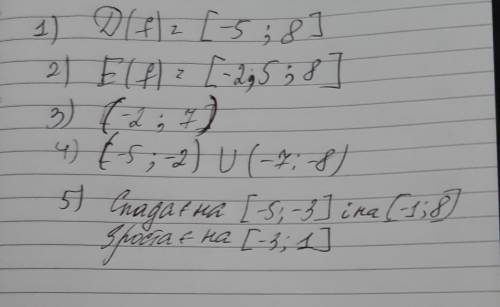 1) D(f) = [-5 ; 8]
2) E(f) = [-2,5 ; 8]
3) (-2 ; 7)
4) (-5 ; -2) U (-7 ; -8)
5) Спадає на [-5; -3] і на [-1; 8]
Зростає на [-3; 1]